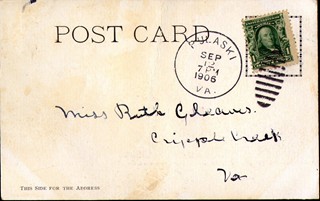 POST CARD
PULASKI
SEP
7 PM
1906
VA.
Miss Ruth Cleaves.
Cripple Creek
Va
THIS SIDE FOR THE ADDRESS